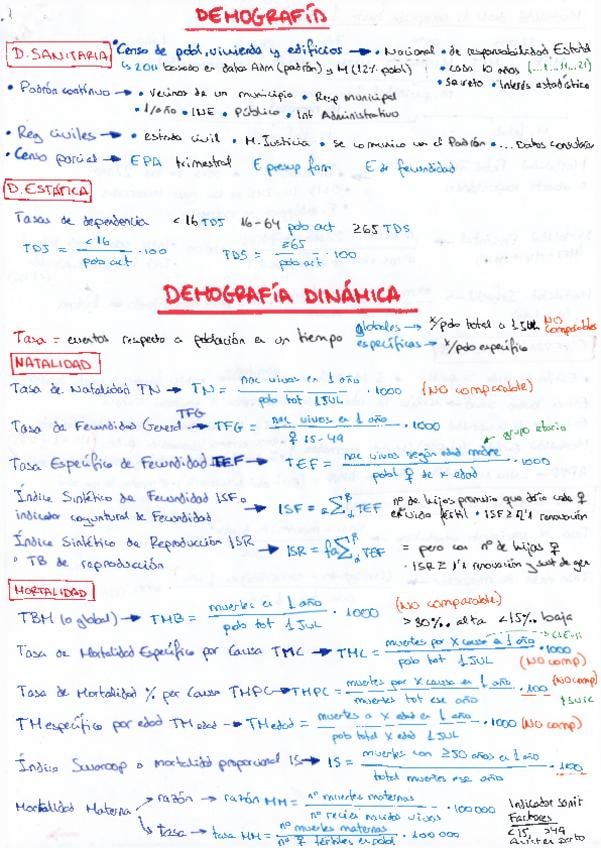 DEMOGRAFÍA
D. SANITARIA • Censo de pobl, vivienda y edificios → • Nacional • de responsabilidad Estatal
↳ 2011 basado en datos Adm (padrón) y M (12% pobl) • cada 10 años (...1...11...21)
• Secreto • Interés estadístico
• Padrón continuo → • vecinos de un municipio • Resp municipal
• 1/año • INE • Público • Int Administrativo
• Reg civiles → • estado civil • M. Justicia • se comunica con el Padrón • ... Datos
• Censo parcial → EPA trimestral E presup fam E de fecundidad
D. ESTÁTICA
Tasas de dependencia <16 TDJ 16-64 pob act ≥65 TDS
TDJ = <16 / pob act · 100 TDS = ≥65 / pob act · 100
DEMOGRAFÍA DINÁMICA
Tasa = eventos respecto a población en un tiempo globales → x/pob total a 1 JUL NO comparables
específicas → x/pob específica
NATALIDAD
Tasa de Natalidad TN → TN = nac vivos en 1 año / pob tot 1 JUL · 1000 (NO comparable)
Tasa de Fecundidad General TFG → TFG = nac vivos en 1 año / ♀ 15-49 · 1000
grupo etario
Tasa Específica de Fecundidad TEF → TEF = nac vivos según edad madre / pobl ♀ de x edad · 1000
Índice Sintético de Fecundidad ISF o
indicador coyuntural de Fecundidad → ISF = a∑TEF nº de hijos promedio que daría cada ♀
en vida fértil · ISF ≥ 2'1 renovación
Índice Sintético de Reproducción ISR
o TB de reproducción → ISR = fa∑TEF = pero con nº de hijas ♀
· ISR ≥ 1'1 renovación y sust de gen
MORTALIDAD
TBM (o global) → TMB = muertes en 1 año / pob tot 1 JUL · 1000 (NO comparable)
>30‰ alta <15‰ baja
Tasa de Mortalidad Específica por Causa TMC → TMC = muertes por X causa en 1 año / pob tot 1 JUL · 1000
(NO comp)
Tasa de Mortalidad % por Causa TMPC → TMPC = muertes por x causa en 1 año / muertes tot ese año · 100 (NO comp)
TM específica por edad TM edad → TM edad = muertes a X edad en 1 año / pob total X edad 1 JUL · 1000 (NO comp)
Índice Swaroop o mortalidad proporcional IS → IS = muertes con ≥50 años en 1 año / total muertes ese año · 100
Mortalidad Materna → razón → razón MM = nº muertes maternas / nº recién nacidos vivos · 100000
↳ tasa → tasa MM = nº muertes maternas / nº ♀ fértiles en pobl · 100000
Indicador sanit
Factores
<15, >49